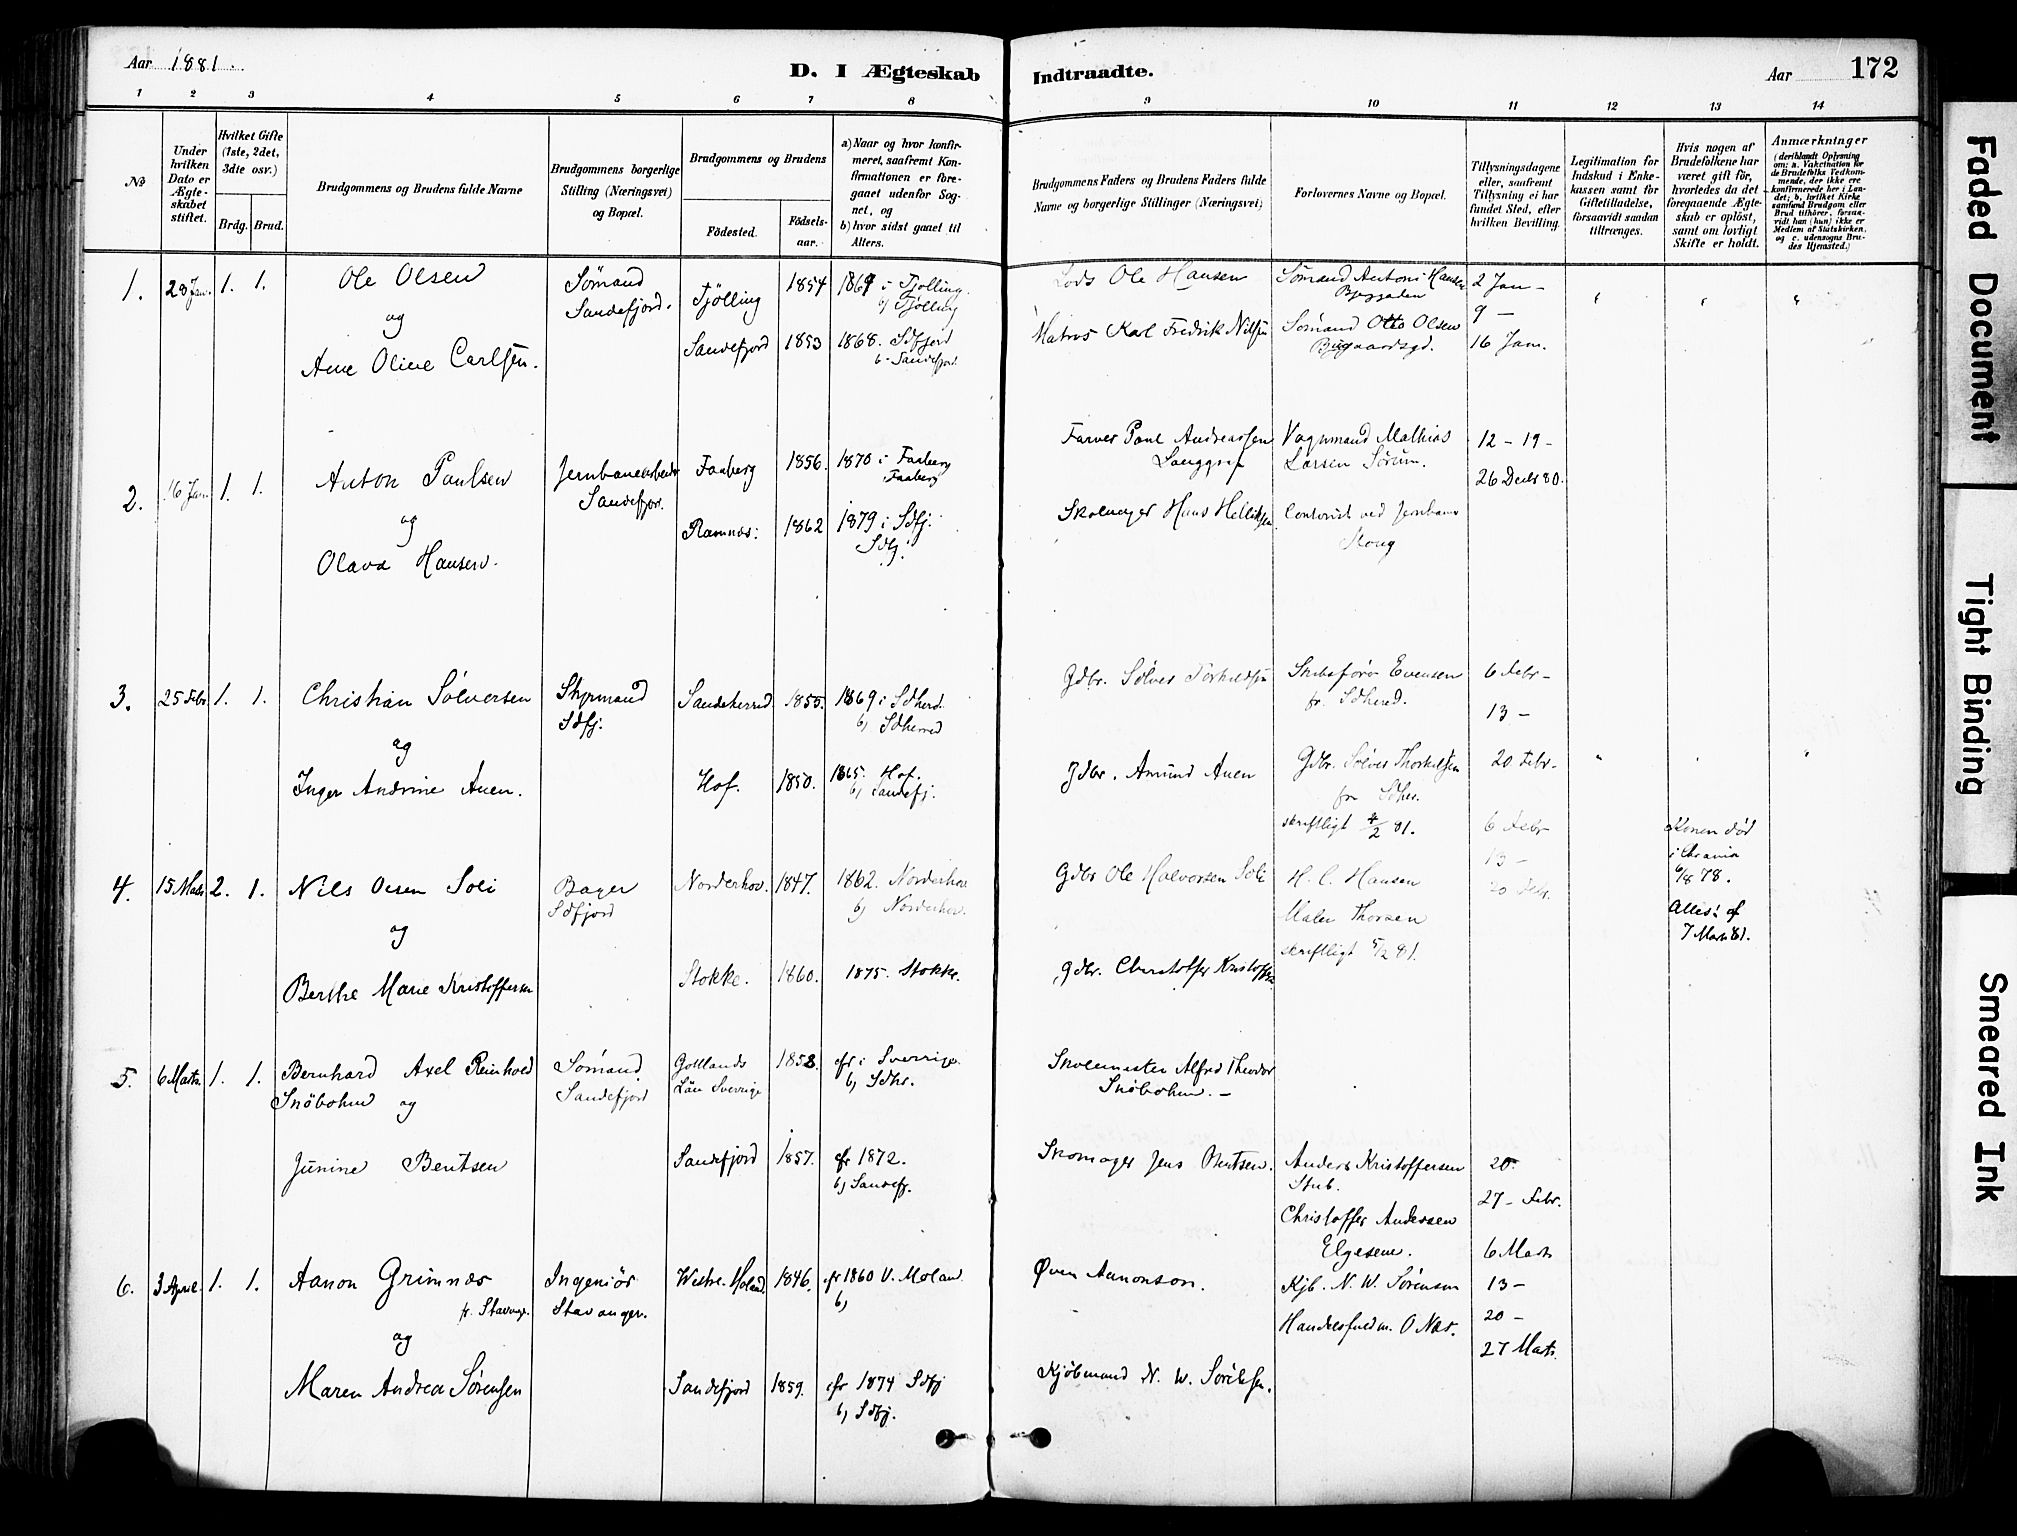 Aar 1881.
D. I Ægteskab Indtraadte.
Aar 172
1 2 3 4 5 6 7 8 9 10 11 12 13 14
No
Under hvilken Dato er Ægteskabet stiftet.
Hvilket Gifte (1ste, 2det, 3die osv.)
Brdg. Brud.
Brudgommens og Brudens fulde Navne
Brudgommens borgerlige Stilling (Næringsvei) og Bopæl.
Brudgommens og Brudens
Fødested.
Fødselsaar.
a) Naar og hvor konfirmeret, saafremt Konfirmationen er foregaaet udenfor Sognet, og
b) hvor sidst gaaet til Alters.
Brudgommens Faders og Brudens Faders fulde Navne og borgerlige Stillinger (Næringsvei)
Forlovernes Navne og Bopæl.
Tillysningsdagene eller, saafremt Tillysning ei har fundet Sted, efter hvilken Bevilling.
Legitimation for Indskud i Enkekassen samt for Giftetilladelse, forsaavidt saadan tiltrænges.
Hvis nogen af Brudefolkene har været gift før, hvorledes da det foregaaende Ægteskab er opløst, samt om lovligt Skifte er holdt.
Anmærkninger
(deriblandt Oplysning om: a. Vakcination for de Brudefolks Vedkommende, der ikke ere konfirmerede her i Landet; b. hvilket Kirkesamfund Brudgom eller Brud tilhører, forsaavidt han (hun) ikke er Medlem af Statskirken, og c. udensogns Brudes Hjemsted.)
1. 28 Jan. 1. 1. Ole Olsen
og
Ane Oline Carlsen.
Sømand
Sandefjord.
Tjølling 1854 1869 i Tjølling.
b) Tjølling
Sandefjord 1853 1868. Sdfjord
b. Sandefjord.
Lods Ole Hansen
Matros Karl Fredrik Nilsen
Sømand Anton Hansen
Sømand Otto Olsen
Bugaardsgd.
2 Jan -
9 -
16 Jan.
2. 16 Jan. 1. 1. Anton Paulsen
og
Olava Hansen.
Sandefjor.
Faaberg 1856. 1870 i Faaberg
Faaberg
Ramnæs: 1862 1879 i Sdfj.
Sdfj.
Farver Poul Andreassen
Vognmand Mathias
Larsen Sørum.
Hans Helliksen
12 - 19 -
26 Decbr 80.
3. 25 Febr. 1. 1. Christian Sølversen
og
Inger Andrine Auen.
Styrmand
Sdfj.
Sandeherred 1855. 1869 i Sdherd.
b) Sdherred
Hof. 1850. 1865. Hof.
b) Sandefj.
Gdbr. Sølver Torkildsen
Gdbr. Amund Auen
Skibsfører Evensen
fr. Sdhered.
Gdbr. Sølver Thorkelsen
fra Sdher.
skriftligt 4/2 81.
6 Febr -
13 -
20 Febr.
4. 15 Marts 2. 1. Nils Olsen Soli
og
Berthe Marie Kristoffersen
Bager
Sdfjord
Norderhov. 1847. 1862. Norderhov
b) Norderhov.
Stokke. 1860. 1875. Stokke.
Gdbr Ole Halvorsen Soli
Gdbr. Christoffer Kristoffer
H. C. Hansen
Maler Thorsen
skriftligt 5/2 81.
6 Febr
13 -
20 Febr.
Konen død
i Chrania
6/8 78.
7 Marts 81.
5. 6 Marts. 1. 1. Bernhard Axel Reinhold
Snöbohm og
Junine Bentsen
Sømand
Sandefjord
Gotlands
Län Sverrige
1858. cfr i Sverrige
b) Sdhr.
Sandefjord 1857. cfr 1872.
b) Sandefj.
Skolemester Alfred Theodor
Snöbohm. -
Skomager Jens Bentsen.
Anders Kristoffersen
Stub.
Christoffer Andersen
Elgesem.
20.
27 - Febr.
6 Marts
6. 3 April. 1. 1. Aanon Grimnæs
fr. Stavanger
og
Maren Andrea Sørensen
Ingeniør
Stavanger.
Westre-Moland 1846. cfr 1860 V. Molan.
b)
Sandefjord 1859. cfr 1874 Sdfj
b) Sdfj.
Øven Aanonson.
Kjøbmand N. W. Sørensen.
Kjb. N. W. Sørensen
Handelsfuldm. O Næs.
13 -
20 -
27 Marts.
Faded Document
Tight Binding
Smeared Ink